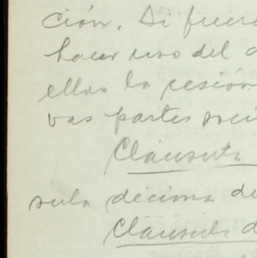 ción. Si fuera
hacer uso del
ellas la cesión
vas partes
Cláusula
sula décima de
Cláusula d